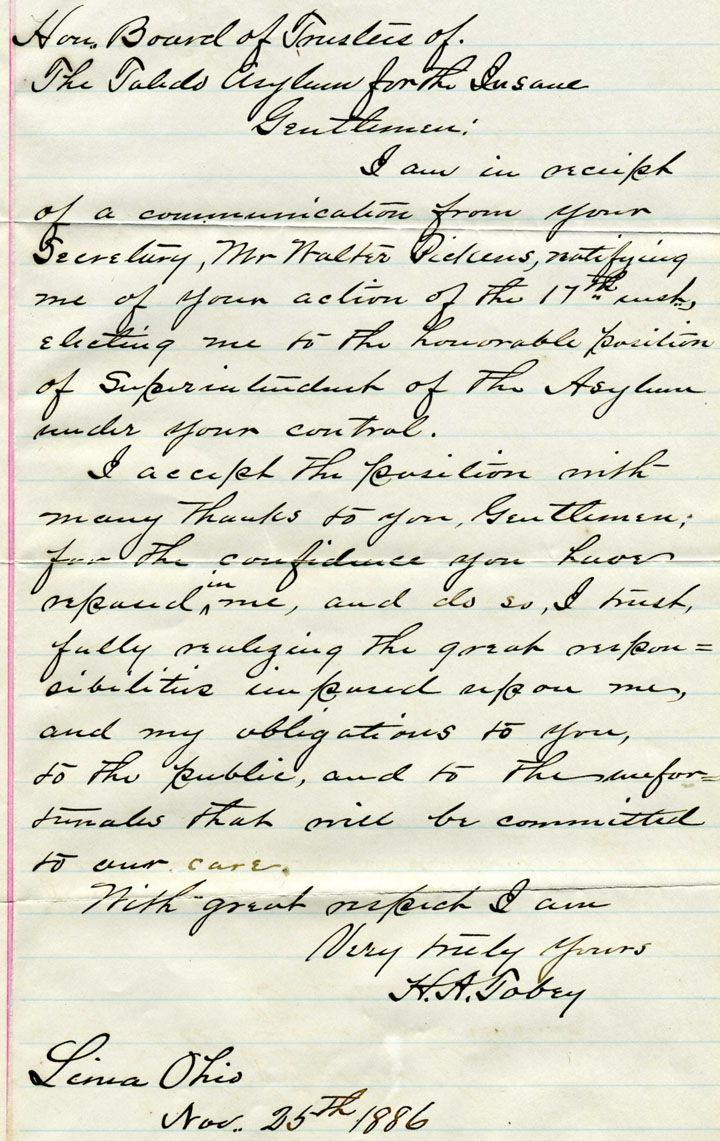 Hon. Board of Trustees of.
The Toledo Asylum for the Insane
Gentlemen:
I am in receipt
of a communication from your
Secretary, Mr Walter Pickens, notifying
me of your action of the 17th inst.,
electing me to the honorable position
of Superintendent of the Asylum
under your control.
I accept the position with
many thanks to you, Gentlemen;
for the confidence you have
reposed in me, and do so, I trust,
fully realizing the great respon=
sibilities imposed upon me,
and my obligations to you,
to the public, and to the unfor=
tunates that will be committed
to our care.
With great respect I am
Very truly yours
H. A. Tobey
Lima Ohio
Nov. 25th 1886